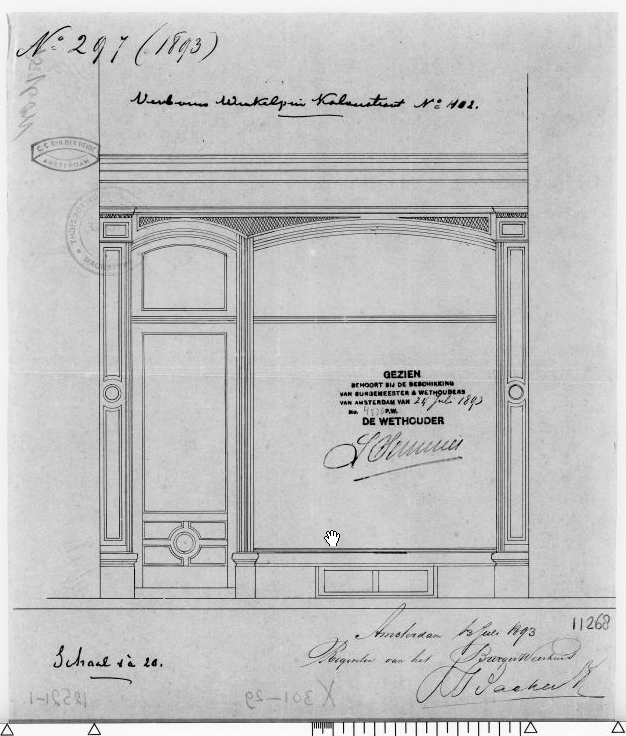 No 297 (1893)
Verbouw Winkelpui Kalverstraat No 102.
C. C. VAN DER HEIDE
AMSTERDAM
GEZIEN
BEHOORT BIJ DE BESCHIKKING
VAN BURGEMEESTER & WETHOUDERS
VAN AMSTERDAM VAN 24 Juli 1893
No. P.W.
DE WETHOUDER
Amsterdam Juli 1893
11268
Regenten van het Burger Weeshuis
Schaal 1 à 20.
X 301-29
12521-1